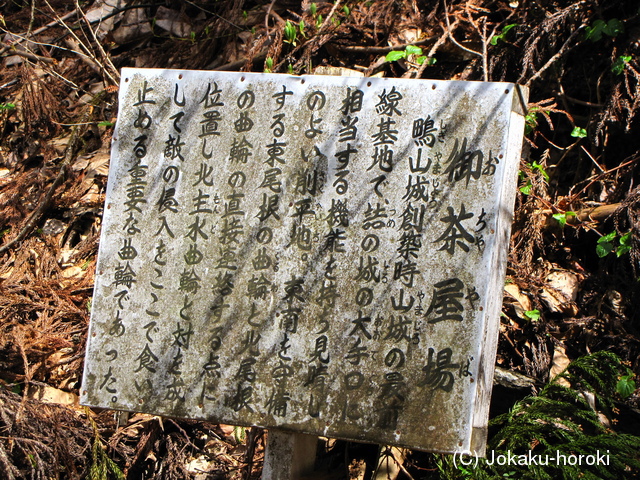 御茶屋場
おちゃやば
鴫山城創築時山城の最前
しぎやまじょう
やまじろ
線基地で詰の城の大手口に
相当する機能を持つ見晴し
のよい削平地。東南を守備
する東尾根の曲輪と北尾根
の曲輪の直接連絡する点に
位置し北主水曲輪と対を成
して敵の侵入をここで食い
止める重要な曲輪であった。
(C) Jokaku-horoki